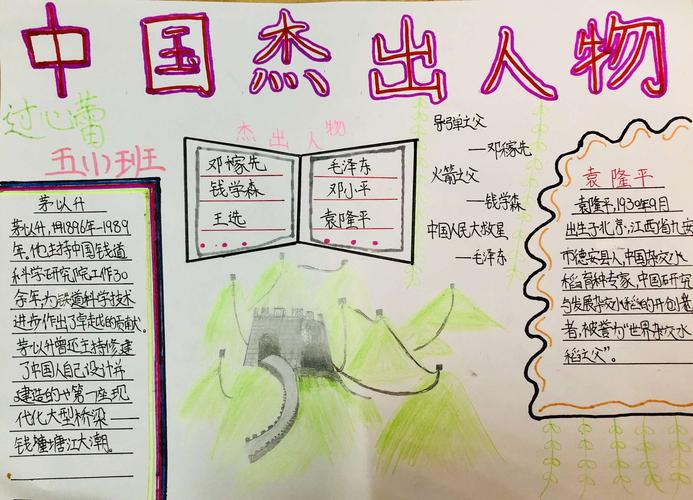 中国杰出人物
过心蕾
五(1)班
茅以升
茅以升,用1896年-1989
年,他主持中国铁道
科学研究院工作30
余年,为铁道科学技术
进步作出了卓越的贡献。
茅以升曾还主持修建
了中国人自己设计并
建造的第一座现
代化大型桥梁——
钱塘江大潮。
杰出人物
邓稼先
钱学森
王选
毛泽东
邓小平
袁隆平
导弹之父
——邓稼先
火箭之父
——钱学森
中国人民大救星
——毛泽东
袁隆平
袁隆平,1930年9月
出生于北京,江西省九
市德安县人,中国杂交水
稻育种专家,中国研究
与发展杂交水稻的开创者
者,被誉为"世界杂交水
稻之父"。